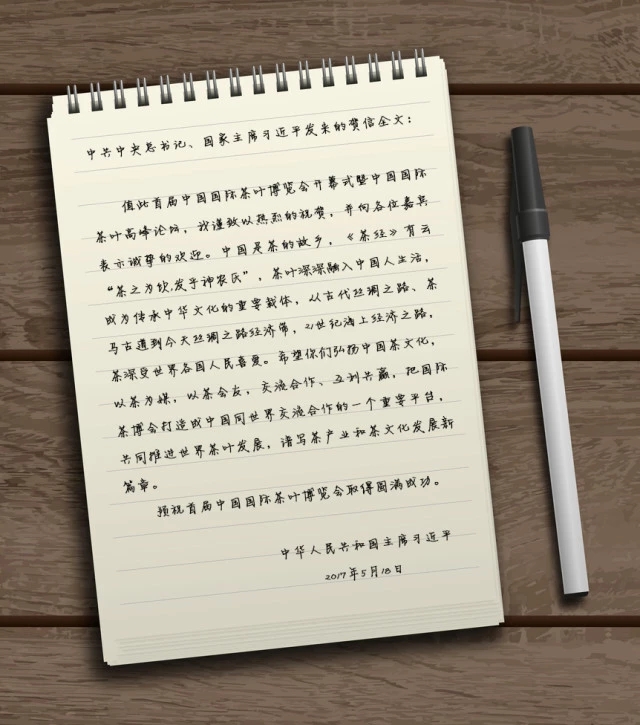 中共中央总书记、国家主席习近平发来的贺信全文：
值此首届中国国际茶叶博览会开幕式暨中国国际
茶叶高峰论坛，我谨致以热烈的祝贺，并向各位嘉宾
表示诚挚的欢迎。中国是茶的故乡，《茶经》有云
“茶之为饮，发乎神农氏”，茶叶深深融入中国人生活，
成为传承中华文化的重要载体，从古代丝绸之路、茶
马古道到今天丝绸之路经济带，21世纪海上经济之路，
茶深受世界各国人民喜爱。希望你们弘扬中国茶文化，
以茶为媒，以茶会友，交流合作、互利共赢，把国际
茶博会打造成中国同世界交流合作的一个重要平台，
共同推进世界茶叶发展，谱写茶产业和茶文化发展新
篇章。
预祝首届中国国际茶叶博览会取得圆满成功。
中华人民共和国主席习近平
2017年5月18日